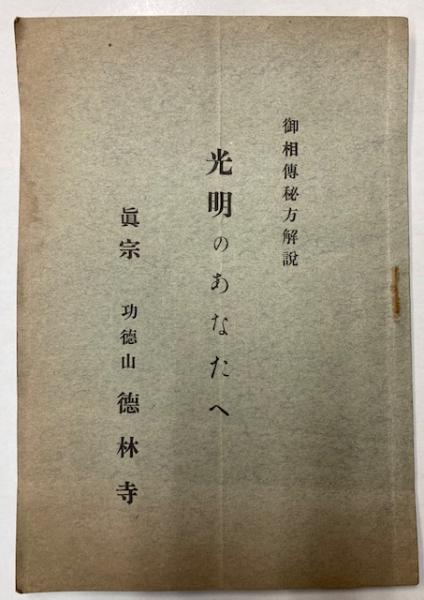 御相傳秘方解說
光明のあなたへ
眞宗 功德山 德林寺